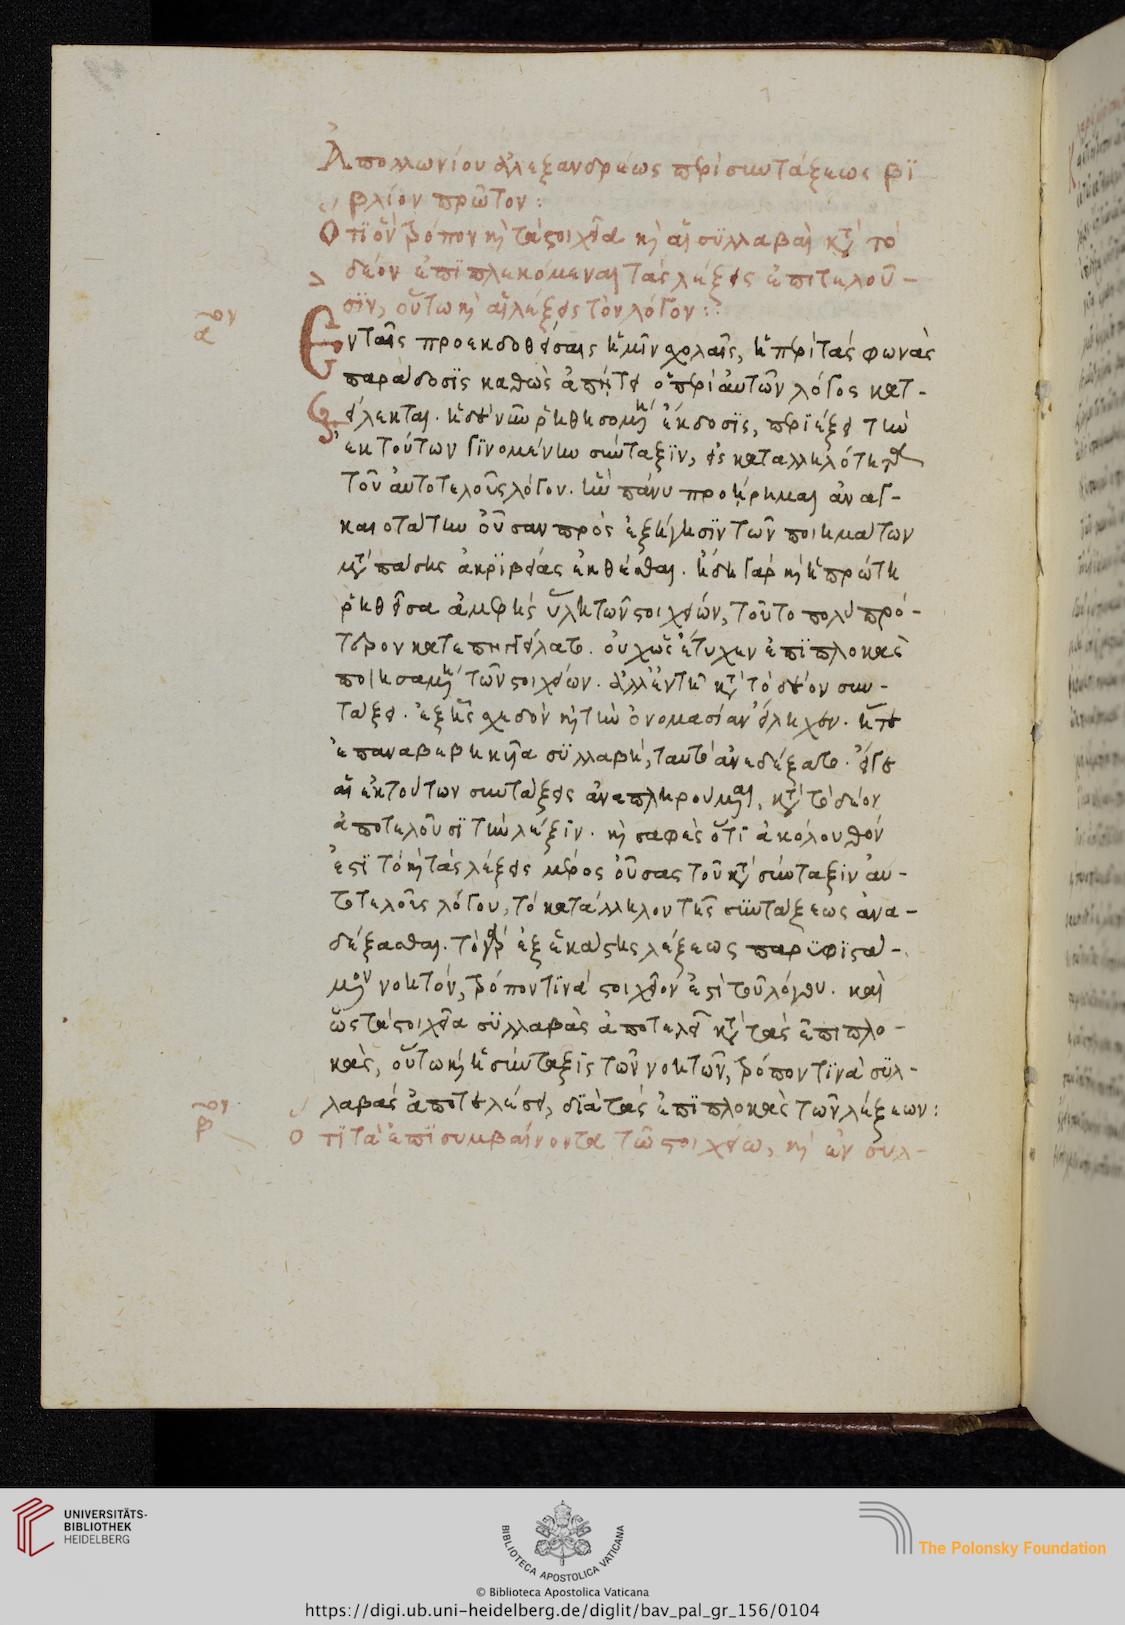 Ἀπολλωνίου ἀλεξανδρέως περὶ συντάξεως βϊ
βλίον πρῶτον:
Ὅτι ὃν τρόπον καὶ τὰ στοιχεῖα καὶ αἱ συλλαβαὶ κατὰ τὸ
δέον ἐπιπλεκόμεναι τὰς λέξεις ἐπιτελοῦ-
σιν, οὕτω καὶ αἱ λέξεις τὸν λόγον:
α̅ον
Ἐν ταῖς προεκδοθείσαις ἡμῖν σχολαῖς, ἡ περὶ τὰς φωνὰς
παράδοσις καθὼς ἀπῄτει ὁ περὶ αὐτῶν λόγος κατ-
είλεκται. ἡ δὲ νῦν ῥηθησομένη ἔκδοσις, περιέξει τὴν
ἐκ τούτων γινομένην σύνταξιν, εἰς καταλληλότητα
τοῦ αὐτοτελοῦς λόγου. ἣν πάνυ προῄρημαι ἀναγ-
καιοτάτην οὖσαν πρὸς ἐξήγησιν τῶν ποιημάτων
μετὰ πάσης ἀκριβείας ἐκθέσθαι. ἤδη γὰρ καὶ ἡ πρώτη
ῥηθεῖσα ἀμερὴς ὕλη τῶν στοιχείων, τοῦτο πολὺ πρό-
τερον κατεπηγγείλατο. οὐχ ὡς ἔτυχεν ἐπιπλοκὰς
ποιησαμένη τῶν στοιχείων. ἀλλ' ἐν τῇ κατὰ τὸ δέον συν-
τάξει. ἐξ ἧς σχεδὸν καὶ τὴν ὀνομασίαν εἴληχεν. ἥ τε
ἐπαναβεβηκυῖα συλλαβὴ, ταυτὸ ἀνεδέξατο. εἴγε
αἱ ἐκ τούτων συντάξεις ἀναπληρούμεναι, κατὰ τὸ δέον
ἀποτελοῦσι τὴν λέξιν. καὶ σαφὲς ὅτι ἀκόλουθόν
ἐστι τὸ καὶ τὰς λέξεις μέρος οὔσας τοῦ κατὰ σύνταξιν αὐ-
τοτελοῦς λόγου, τὸ κατάλληλον τῆς συντάξεως ἀνα-
δέξασθαι. τὸ γὰρ ἐξ ἑκάστης λέξεως παρυφιστά-
μενον νοητὸν, τρόπον τινὰ στοιχεῖόν ἐστι τοῦ λόγου. καὶ
ὡς τὰ στοιχεῖα συλλαβὰς ἀποτελεῖ κατὰ τὰς ἐπιπλο-
κὰς, οὕτω καὶ ἡ σύνταξις τῶν νοητῶν, τρόπον τινὰ συλ-
λαβὰς ἀποτελέσει, διὰ τὰς ἐπιπλοκὰς τῶν λέξεων:
β̅ον
Ὅτι τὰ ἐπισυμβαίνοντα τῷ στοιχείῳ, καὶ ἐν συλ-
UNIVERSITÄTS-
BIBLIOTHEK
HEIDELBERG
BIBLIOTECA APOSTOLICA VATICANA
The Polonsky Foundation
© Biblioteca Apostolica Vaticana
https://digi.ub.uni-heidelberg.de/diglit/bav_pal_gr_156/0104